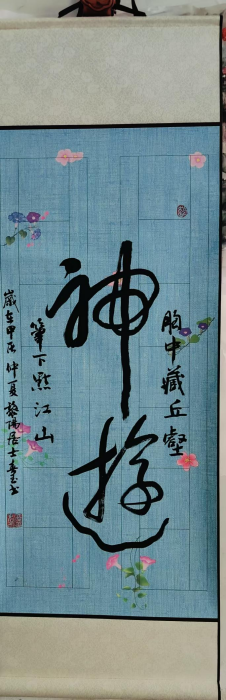 胸中藏丘壑
神游
筆下點江山
歲在甲辰仲夏黎陽居士春玉书